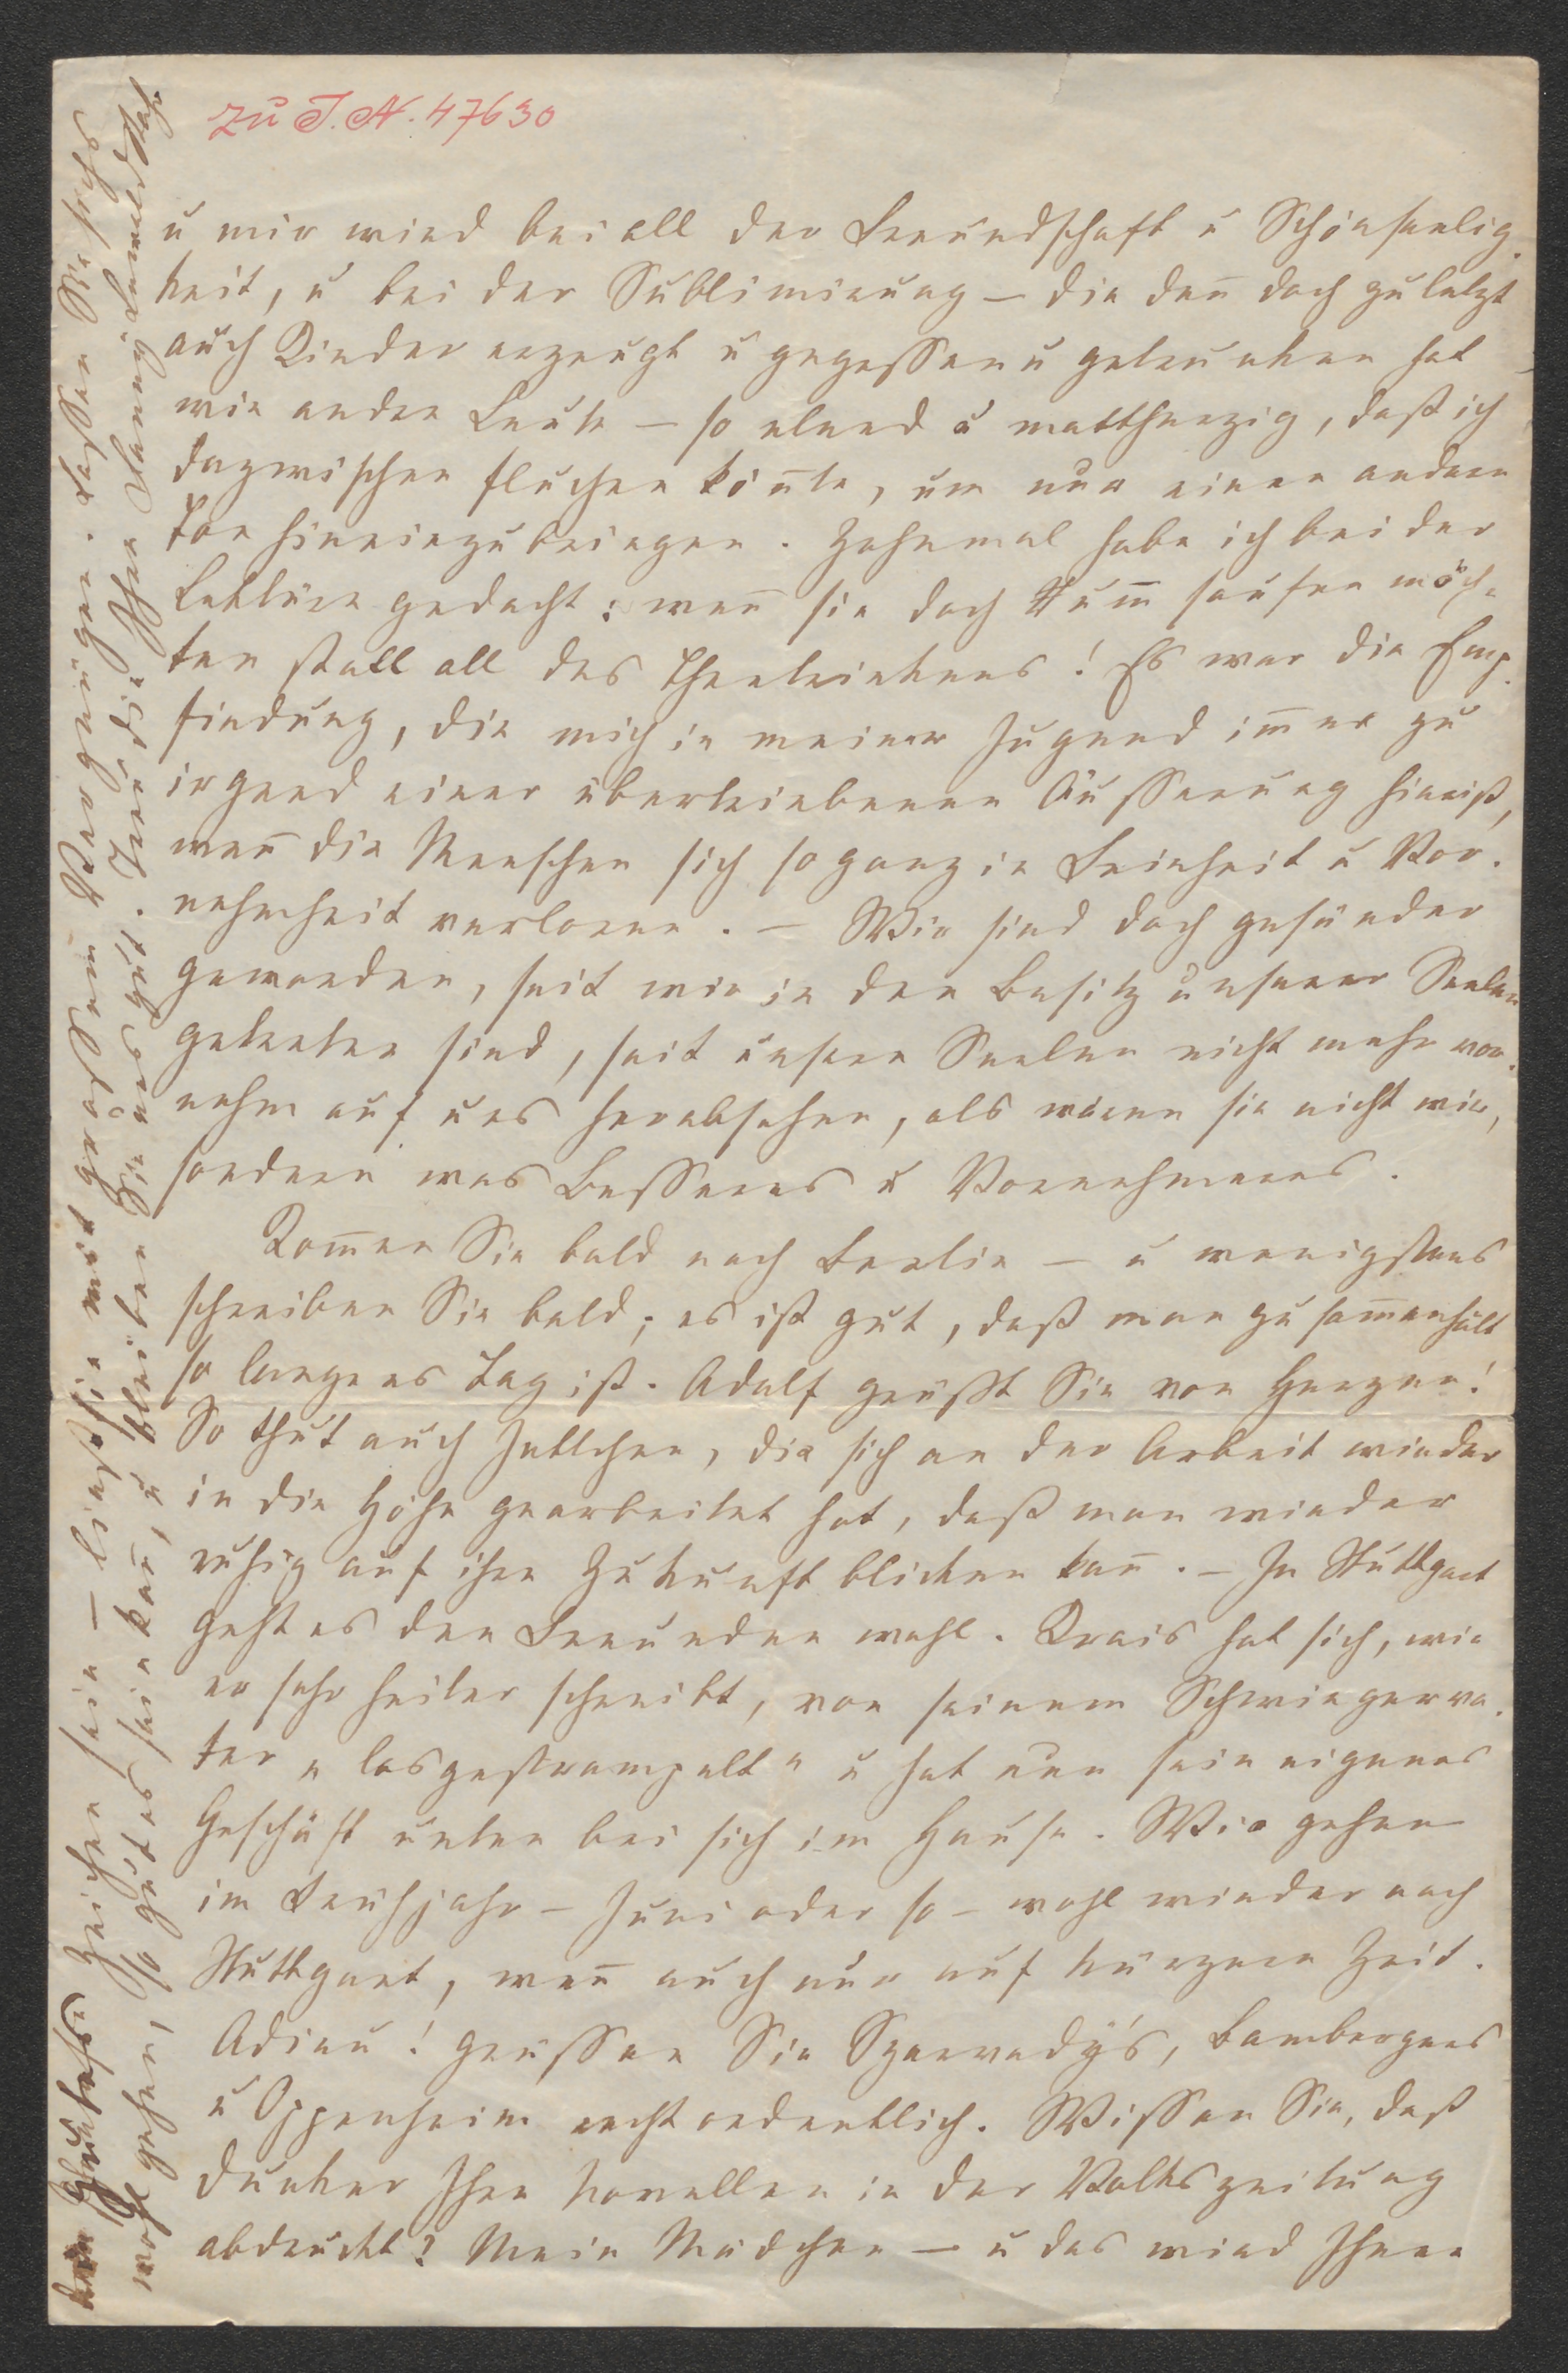 zu I. N. 47630
u mir wird bei all der Freundschaft u Schönseelig-
keit, u bei der Sublimirung — die den̄ doch zuletzt
auch Kinder erzeugt u gegessen u getrunken hat
wie andre Leute — so elend u mattherzig, daß ich
dazwischen fluchen kön̄te, um nur einen andern
Ton hineinzubringen. Zehnmal habe ich bei der
Lektüre gedacht: wen̄ sie doch Rum̄ saufen möch-
ten statt all des Theetrinkens! Es war die Emp-
findung, die mich in meiner Jugend im̄er zu
irgend einer übertriebenen Äusserung hinriß,
wen̄ die Menschen sich so ganz in Feinheit u Vor-
nehmheit verloren. — Wir sind doch gesünder
geworden, seit wir in den Besitz unserer Seelen
getreten sind, seit unsere Seelen nicht mehr vor-
nehm auf uns herabsehen, als wären sie nicht wir,
sondern was Besseres u Vornehmeres.
Kom̄en Sie bald nach Berlin — u wenigstens
schreiben Sie bald; es ist gut, daß man zusam̄enhält
so lange es Tag ist. Adolf grüßt Sie von Herzen!
So thut auch Jettchen, die sich an der Arbeit wieder
in die Höhe gearbeitet hat, daß man wieder
ruhig auf ihre Zukunft blicken kan̄. — In Stuttgart
geht es den Freunden wohl. Krais hat sich, wie
er sehr heiter schreibt, von seinem Schwiegerva-
ter „losgestrampelt“ u hat nun sein eigenes
Geschäft unten bei sich im Hause. Wir gehen
im Frühjahr — Juni oder so — wohl wieder nach
Stuttgart, wen̄ auch nur auf kürzere Zeit.
Adieu! grüssen Sie Szarvady's, Bambergers
u Oppenheim recht ordentlich. Wissen Sie, daß
Duncker Ihre Novellen in der Volkszeitung
abdruckt? Mein Mädchen — u das wird Ihnen
Zeichen sein — liest sie mit großem Vergnügen. Lassen Sie sichs
wohl gehen, so gut es sein kan̄, u bleiben Sie uns gut. Treu die Ihre Fanny Lewald Stahr